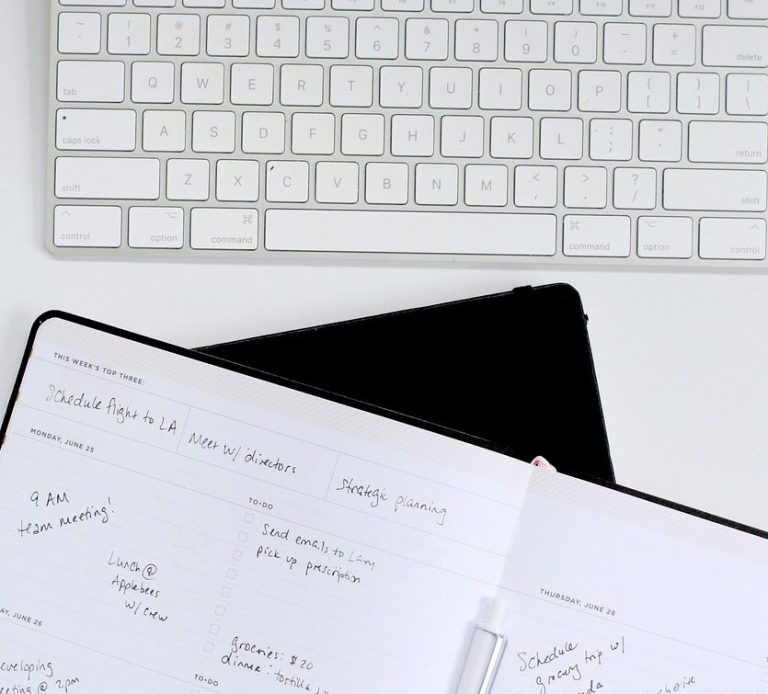 ~ ! @ # $ % ^ & * ( ) — +
` 1 2 3 4 5 6 7 8 9 0 - = delete
tab Q W E R T Y U I O P { } |
[ ] \
caps lock A S D F G H J K L : "
; ' return
shift Z X C V B N M < > ? shift
, . /
control option command command option control
THIS WEEK'S TOP THREE:
Schedule flight to LA
Meet w/ directors
Strategic planning
MONDAY, JUNE 25
9 AM
team meeting!
Lunch @
Applebees
w/ crew
TO-DO
Send emails to Larry
pick up prescription
groceries: $20
dinner: tortilla
JUNE 26
eveloping
meeting @ 2pm
TO-DO
THURSDAY, JUNE 28
Schedule
grocery trip w/